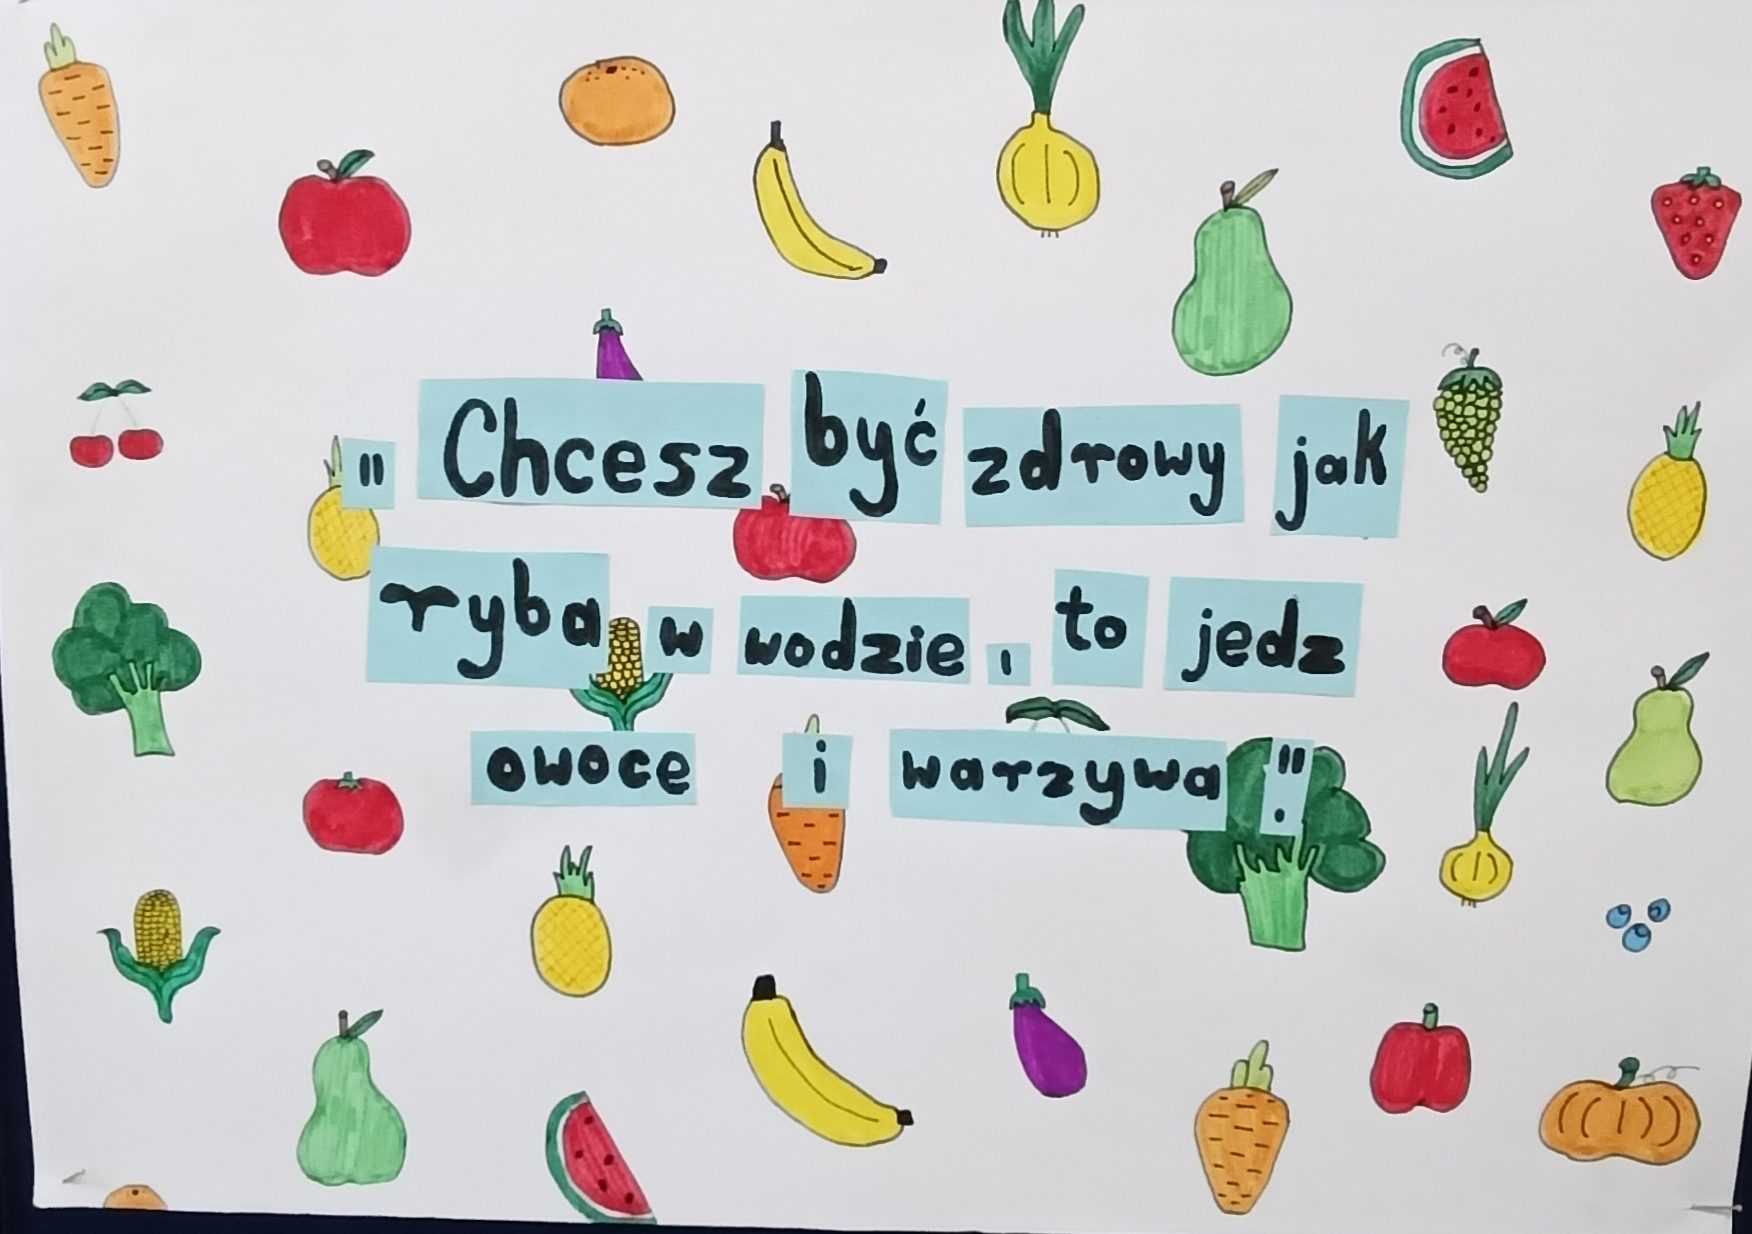 " Chcesz być zdrowy jak
ryba w wodzie, to jedz
owoce i warzywa".